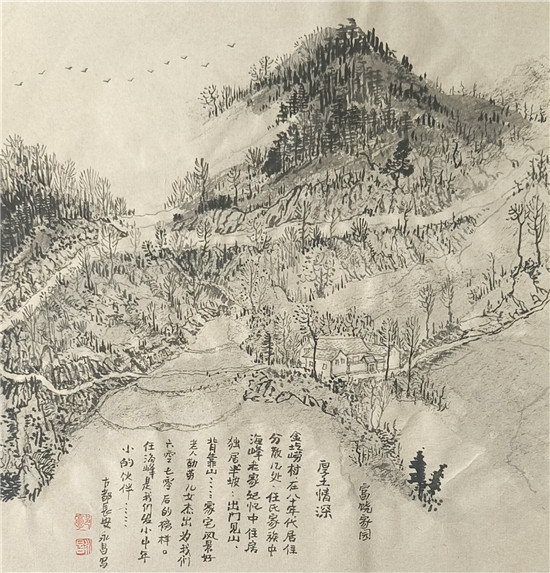 富饶家园
厚土情深
金屹崂村:在八十年代居住
分散几处、任氏家族中
海峰老家记忆中住房
独居半坡:出门见山、
背靠山……家宅风景好
老人勤劳儿女杰出为我们
六零七零后的榜样。
任海峰是我们组小中年
小的伙伴……
古都长安 永昌写